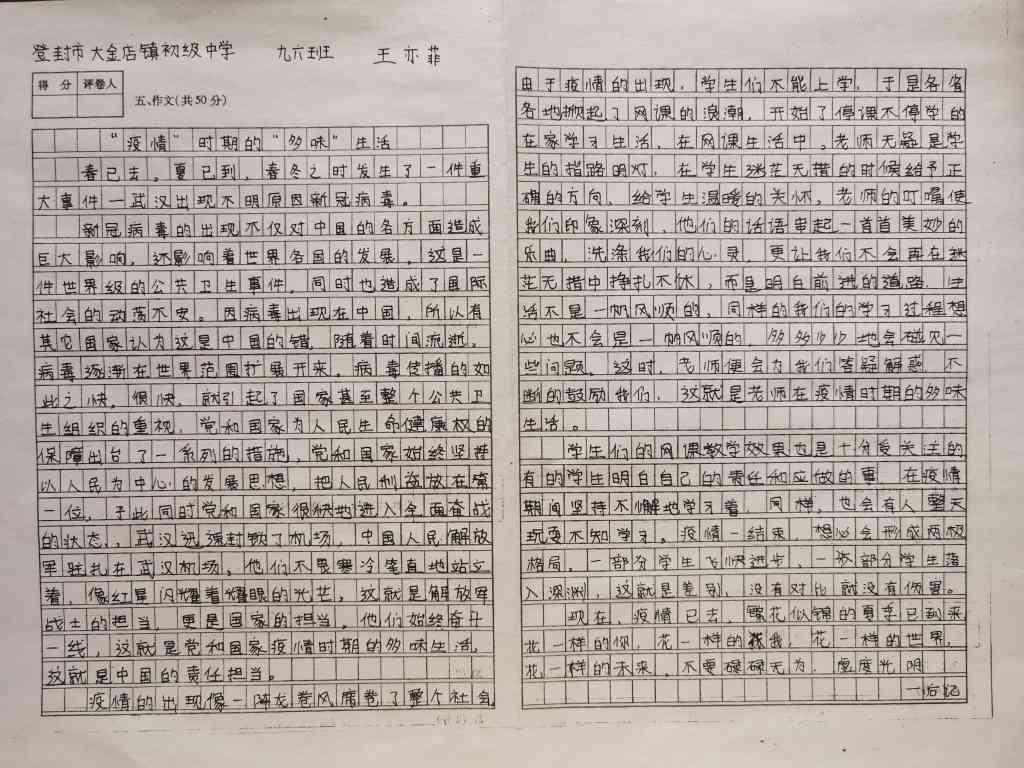 登封市大金店镇初级中学 九六班 王亦菲
得分 评卷人
五、作文(共50分)
“疫情”时期的“多味”生活
春已去。夏已到，春冬之时发生了一件重
大事件—武汉出现不明原因新冠病毒。
新冠病毒的出现不仅对中国的各方面造成
巨大影响，还影响着世界各国的发展。这是一
件世界级的公共卫生事件，同时也造成了国际
社会的动荡不安。因病毒出现在中国，所以有
其它国家认为这是中国的错，随着时间流逝，
病毒逐渐在世界范围扩展开来。病毒传播的如
此之快。很快，就引起了国家甚至整个公共卫
生组织的重视，党和国家为人民生命健康权的
保障出台了一系列的措施，党和国家始终坚持
以人民为中心的发展思想，把人民利益放在第
一位，于此同时党和国家很快地进入全面奋战
的状态，武汉迅速封锁了机场，中国人民解放
军驻扎在武汉机场。他们不畏寒冷笔直地站立
着，像红星闪耀着耀眼的光芒。这就是解放军
战士的担当，更是国家的担当。他们始终奋斗
一线，这就是党和国家疫情时期的多味生活，
这就是中国的责任担当。
疫情的出现像一阵龙卷风席卷了整个社会，
由于疫情的出现，学生们不能上学，于是各省
各地掀起了网课的浪潮，开始了停课不停学的
在家学习生活，在网课生活中。老师无疑是学
生的指路明灯，在学生迷茫无措的时候给予正
确的方向，给学生温暖的关怀，老师的叮嘱使
我们印象深刻，他们的话语串起一首首美妙的
乐曲，洗涤我们的心灵，更让我们不会再在迷
茫无措中挣扎不休，而是明白前进的道路，生
活不是一帆风顺的，同样的我们的学习过程想
必也不会是一帆风顺的，多多少少地会碰见一
些问题，这时，老师便会为我们答疑解惑，不
断的鼓励我们，这就是老师在疫情时期的多味
生活。
学生们的网课教学效果也是十分受关注的，
有的学生明白自己的责任和应做的事，在疫情
期间坚持不懈地学习着，同样，也会有人整天
玩耍不知学习。疫情一结束，想必会形成两极
格局，一部分学生飞快进步，一部分学生落
入深渊，这就是差别，没有对比就没有伤害。
现在，疫情已去，繁花似锦的夏季已到来，
花一样的你，花一样的我，花一样的世界，
花一样的未来，不要碌碌无为，虚度光阴
—后记